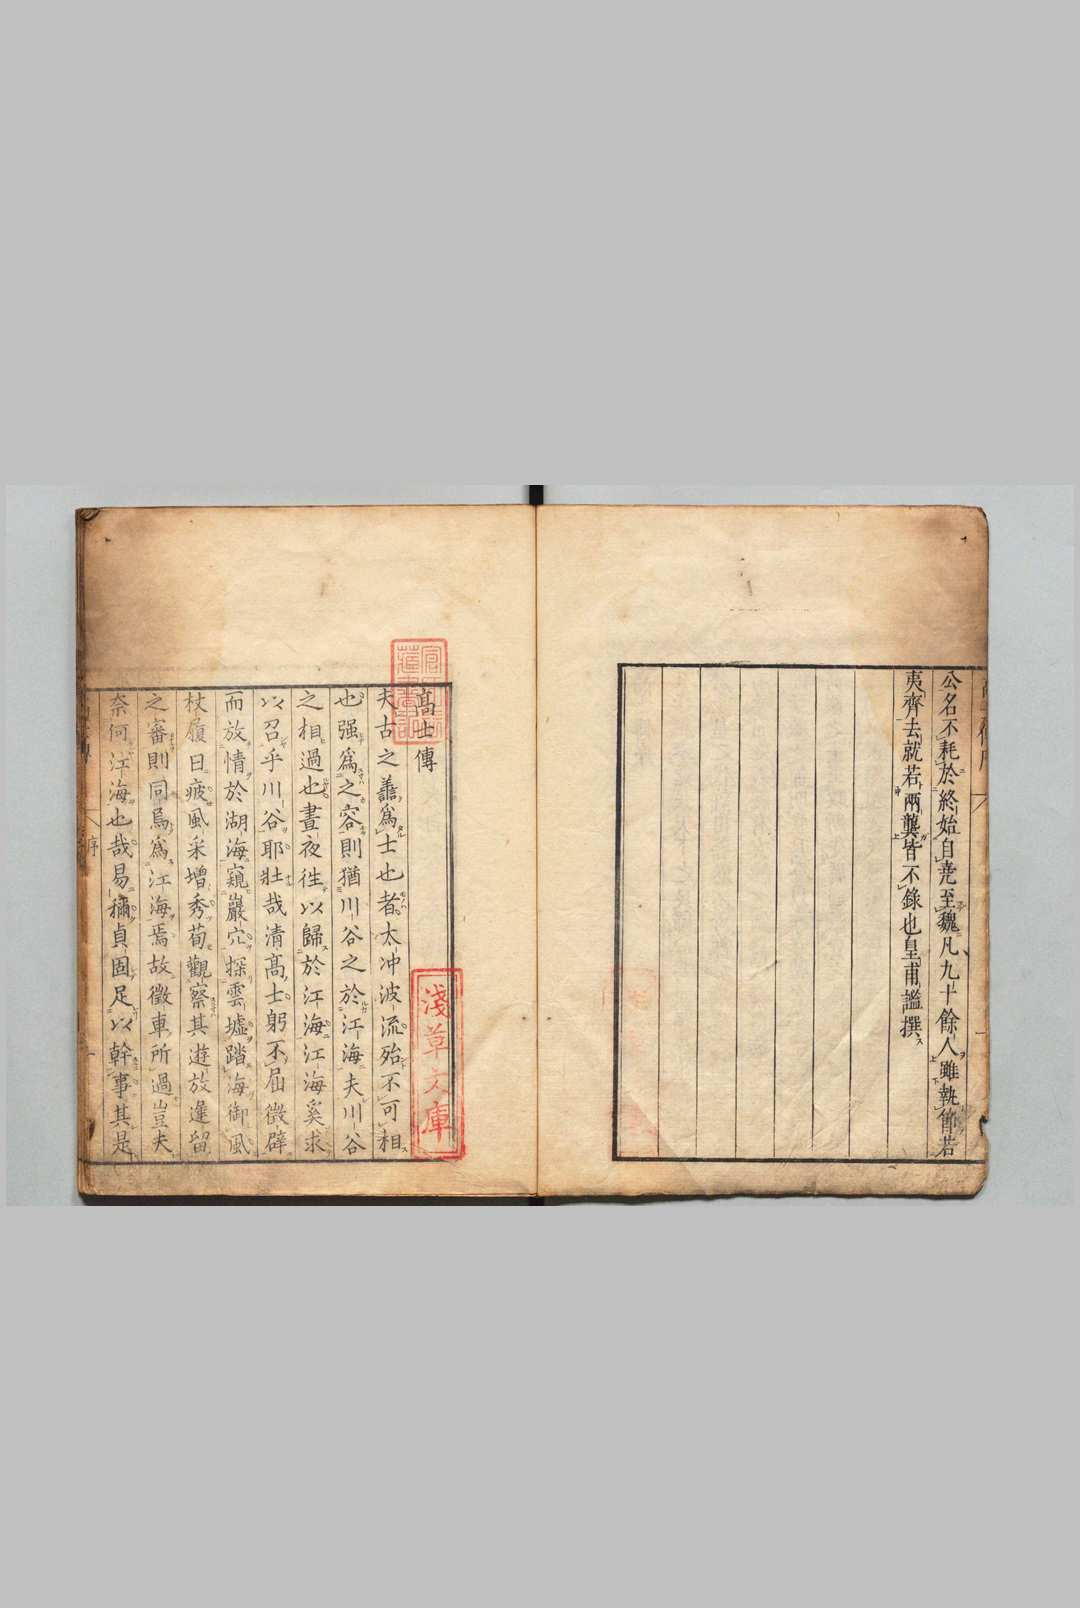 公名不耗於終始自堯至魏凡九十餘人雖執節若
夷齊去就若兩龔皆不錄也皇甫謐撰
高士傳
夫古之善爲士也者太冲波流殆不可相
也强爲之容則猶川谷之於江海夫川谷
之相過也晝夜徃以歸於江海江海奚求
以召乎川谷耶壯哉清高士躬不屈徵辟
而放情於湖海窺巖穴探雲墟踏海御風
杖履日疲風采增秀荀觀察其遊放逢留
之審則同爲江海焉故徵車所過豈夫
奈何江海也哉易稱貞固足以幹事其是
序
淺草文庫